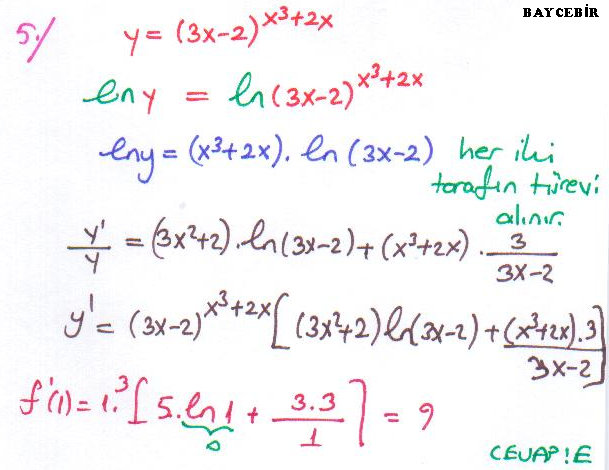 BAYCEBİR
5-/ y = (3x-2)^x³+2x
lny = ln(3x-2)^x³+2x
lny = (x³+2x). ln(3x-2) her iki
tarafın türevi
alınır.
y'/y = (3x²+2).ln(3x-2) + (x³+2x) . 3/3x-2
y' = (3x-2)^x³+2x [(3x²+2)ln(3x-2) + (x³+2x).3/3x-2]
f'(1) = 1.³ [5.ln1 + 3.3/1] = 9
0
CEVAP!E